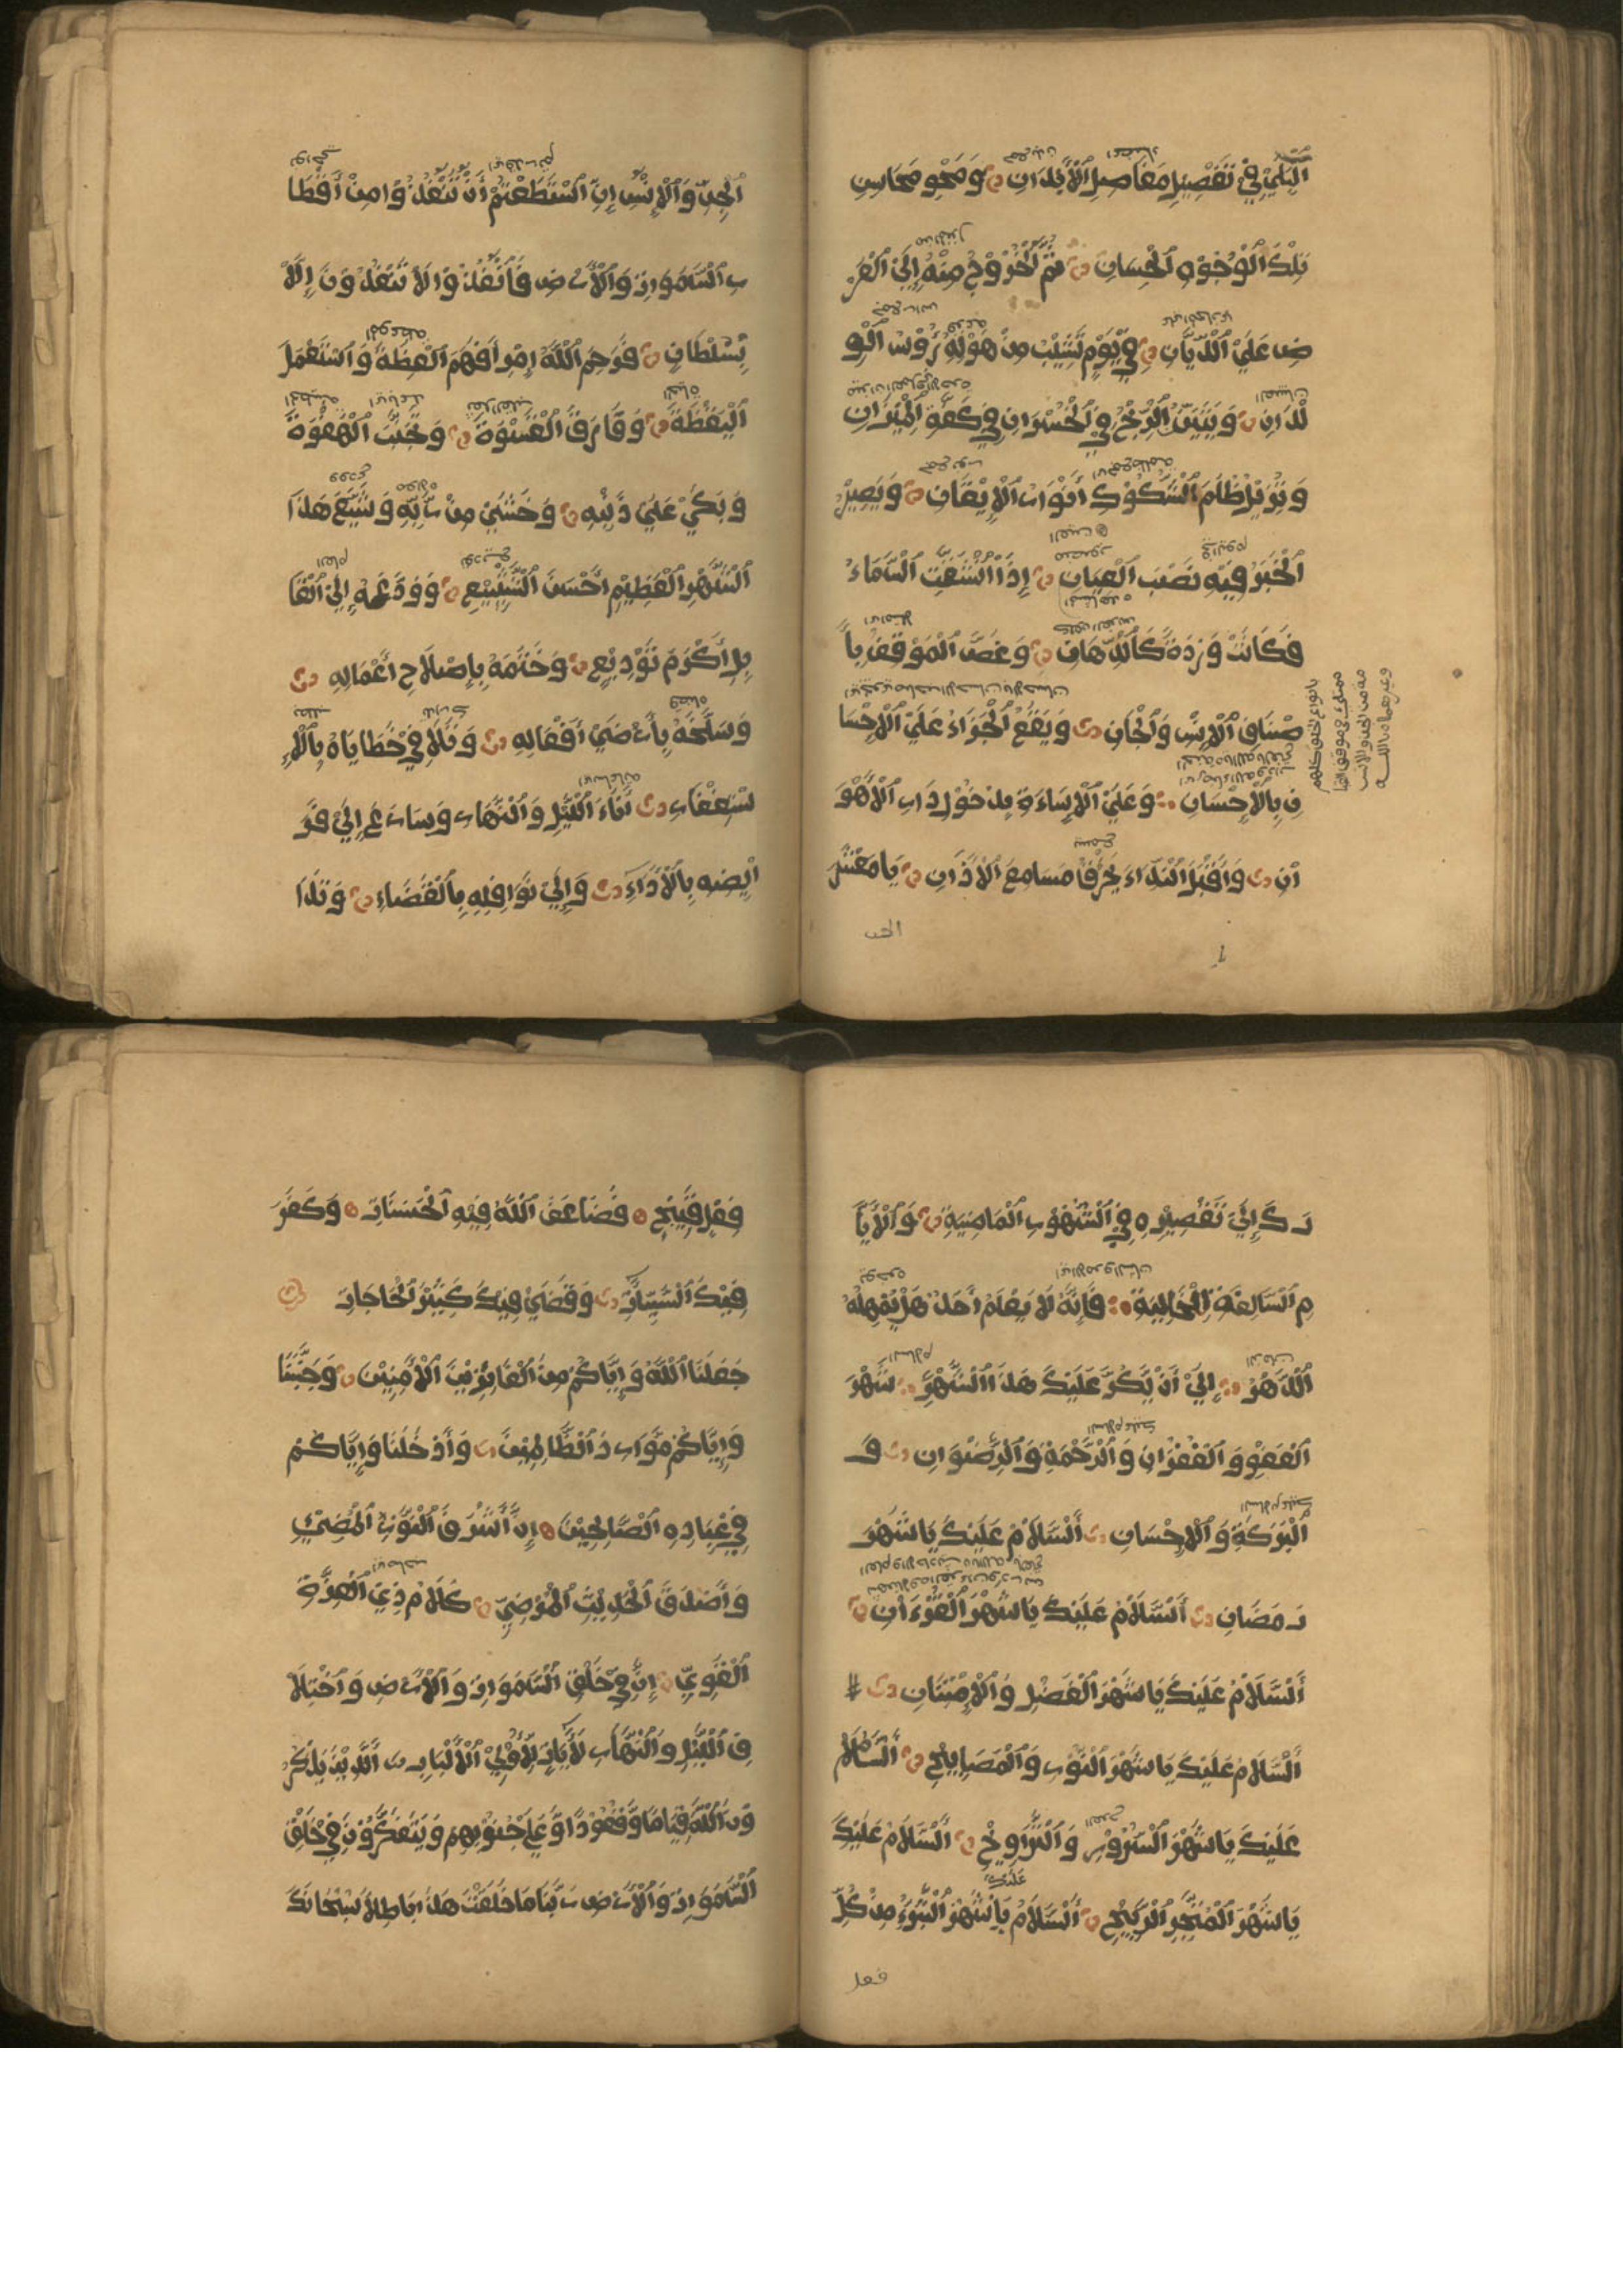 الْبِلَى فِي تَفْصِيلِ مَفَاصِلِ الْأَبْدَانِ وَمَحْوِ مَحَاسِنِ
تِلْكَ الْوُجُوهِ الْحِسَانِ ثُمَّ الْخُرُوجُ مِنْهُ إِلَى الْعَرْ
ضِ عَلَى الدَّيَّانِ فِي يَوْمٍ تَشِيبُ مِنْ هَوْلِهِ رُؤُسُ الْوِ
لْدَانِ وَيَتَبَيَّنُ الرِّبْحُ فِي الْخُسْرَانِ فِي كَفَّةِ الْمِيزَانِ
وَتُزِيلُ ظَلَامَ الشُّكُوكِ أَنْوَارُ الْإِيقَانِ وَيَصِيرُ
الْخَبَرُ فِيهِ نَصْبَ الْعِيَانِ إِذَا انْشَقَّتِ السَّمَاءُ
فَكَانَتْ وَرْدَةً كَالدِّهَانِ وَغَصَّ الْمَوْقِفُ بِأَ
صْنَافِ الْإِنْسِ وَالْجَانِ وَيَقَعُ الْجَزَاءُ عَلَى الْإِحْسَا
نِ بِالْإِحْسَانِ وَعَلَى الْإِسَاءَةِ بِدُخُولِ دَارِ الْهَوَ
انِ وَأَقْبَلَ النِّدَاءُ يَخْرُقُ مَسَامِعَ الْآذَانِ يَا مَعْشَرَ
الجن
الْجِنِّ وَالْإِنْسِ إِنِ اسْتَطَعْتُمْ أَنْ تَنْفُذُوا مِنْ أَقْطَا
رِ السَّمَوَاتِ وَالْأَرْضِ فَانْفُذُوا لَا تَنْفُذُونَ إِلَّا
بِسُلْطَانٍ فَرَحِمَ اللَّهُ امْرَأً فَهِمَ الْعِظَةَ وَاسْتَعْمَلَ
الْيَقْظَةَ وَفَارَقَ الْقَسْوَةَ وَتَجَنَّبَ الْهَفْوَةَ
وَبَكَى عَلَى ذَنْبِهِ وَخَشِيَ مِنْ رَبِّهِ وَشَيَّعَ هَذَا
الشَّهْرَ الْعَظِيمَ أَحْسَنَ التَّشْيِيعِ وَوَدَّعَهُ إِلَى الْقَا
بِلِ أَكْرَمَ تَوْدِيعٍ وَخَتَمَهُ بِإِصْلَاحِ أَعْمَالِهِ
وَسَلَخَهُ بِأَرْضَى أَفْعَالِهِ وَتَلَافَى خَطَايَاهُ بِالْإِ
سْتِغْفَارِ أَنَاءَ اللَّيْلِ وَالنَّهَارِ وَسَارَعَ إِلَى فَرَ
ائِضِهِ بِالْأَدَاءِ وَإِلَى نَوَافِلِهِ بِالْقَضَاءِ وَتَدَا
رَكَ إِلَى تَقْصِيرِهِ فِي الشُّهُورِ الْمَاضِيَةِ وَالْأَيَّا
مِ السَّالِفَةِ الْخَالِيَةِ فَإِنَّهُ لَا يَعْلَمُ أَحَدٌ هَلْ يُمْهِلُهُ
الدَّهْرُ إِلَى أَنْ يَكُرَّ عَلَيْكَ هَذَا الشَّهْرُ شَهْرُ
الْعَفْوِ وَالْغُفْرَانِ وَالرَّحْمَةِ وَالرِّضْوَانِ وَ
الْبَرَكَةِ وَالْإِحْسَانِ السَّلَامُ عَلَيْكَ يَا شَهْرَ
رَمَضَانِ السَّلَامُ عَلَيْكَ يَا شَهْرَ الْقُرْءَانِ
السَّلَامُ عَلَيْكَ يَا شَهْرَ الْفَضْلِ وَالْإِمْتِنَانِ
السَّلَامُ عَلَيْكَ يَا شَهْرَ النُّورِ وَالْمَصَابِيحِ السَّلَامُ
عَلَيْكَ يَا شَهْرَ السُّرُورِ وَالتَّرَاوِيحِ السَّلَامُ عَلَيْكَ
يَا شَهْرَ الْمَتْجَرِ الرَّبِيحِ السَّلَامُ عَلَيْكَ يَا شَهْرَ التَّبَرُّءِ مِنْ كُلِّ
فعل
فِعْلٍ قَبِيحٍ فَضَاعَفَ اللَّهُ فِيهِ الْحَسَنَاتِ وَكَفَّرَ
فِيكَ السَّيِّئَاتِ وَقَضَى فِيكَ كَثِيرَ الْحَاجَاتِ
جَعَلَنَا اللَّهُ وَإِيَّاكُمْ مِنَ الْفَائِزِينَ الْأَمِنِينَ وَجَنَّبَنَا
وَإِيَّاكُمْ مَوَارِدَ الظَّالِمِينَ وَأَدْخَلَنَا وَإِيَّاكُمْ
فِي عِبَادِهِ الصَّالِحِينَ إِنَّ أَشْرَقَ النُّورِ الْمُضِيِّ
وَأَصْدَقَ الْحَدِيثِ الْمَرْضِيِّ كَلَامُ ذِي الْعِزَّةِ
الْقَوِيِّ إِنَّ فِي خَلْقِ السَّمَوَاتِ وَالْأَرْضِ وَاخْتِلَا
فِ اللَّيْلِ وَالنَّهَارِ لَأَيَاتٍ لِأُولِي الْأَلْبَابِ الَّذِينَ يَذْكُرُ
ونَ اللَّهَ قِيَامًا وَقُعُودًا وَعَلَى جُنُوبِهِمْ وَيَتَفَكَّرُونَ فِي خَلْقِ
السَّمَوَاتِ وَالْأَرْضِ رَبَّنَا مَا خَلَقْتَ هَذَا بَاطِلًا سُبْحَانَكَ